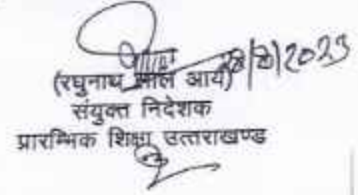 (रघुनाथ लाल आर्य)
संयुक्त निदेशक
प्रारम्भिक शिक्षा उत्तराखण्ड